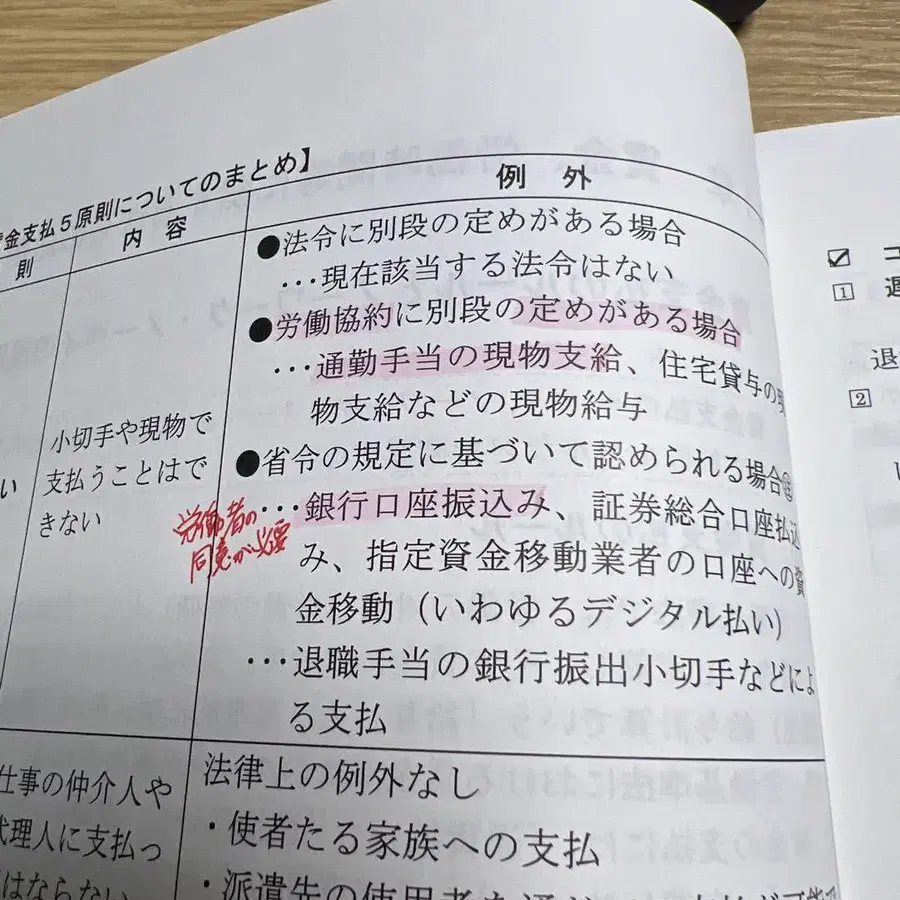 金支払5原則についてのまとめ】
則
内 容
例 外
小切手や現物で
支払うことはで
きない
い
●法令に別段の定めがある場合
…現在該当する法令はない
●労働協約に別段の定めがある場合
…通勤手当の現物支給、住宅貸与の現
物支給などの現物給与
●省令の規定に基づいて認められる場合
…銀行口座振込み、証券総合口座払込
み、指定資金移動業者の口座への資
金移動(いわゆるデジタル払い)
…退職手当の銀行振出小切手などによ
る支払
労働者の
同意が必要
仕事の仲介人や
代理人に支払っ
はならない
法律上の例外なし
・使者たる家族への支払
・派遣先の使用者を通じ
1
退
2